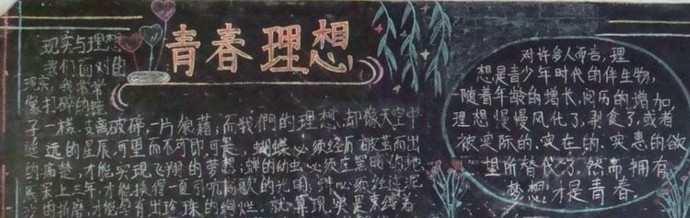 青春理想
现实与理想
我们面对自
现实,我常常
像打碎的镜
子一样,支离破碎,一片狼藉,而我們的理想,却像天空中
遥远的星辰,可望而不可即,可是,蝴蝶必须经历破茧而出
的痛楚,才能实现飞翔的梦想;蝉的幼虫必须在黑暗的地
底呆上三年,才能换得一夏引吭高歌的光阴;蚌必须经过泥
沙的折磨,才能孕育出珍珠的绚烂。就算现实是束缚着
对许多人而言,理
想是青少年时代的伴生物,
随着年龄的增长,阅历的增加,
理想慢慢风化了,剥食了,或者
被实际的,实在的,实惠的欲
望所替代了。然而拥有
梦想才是青春